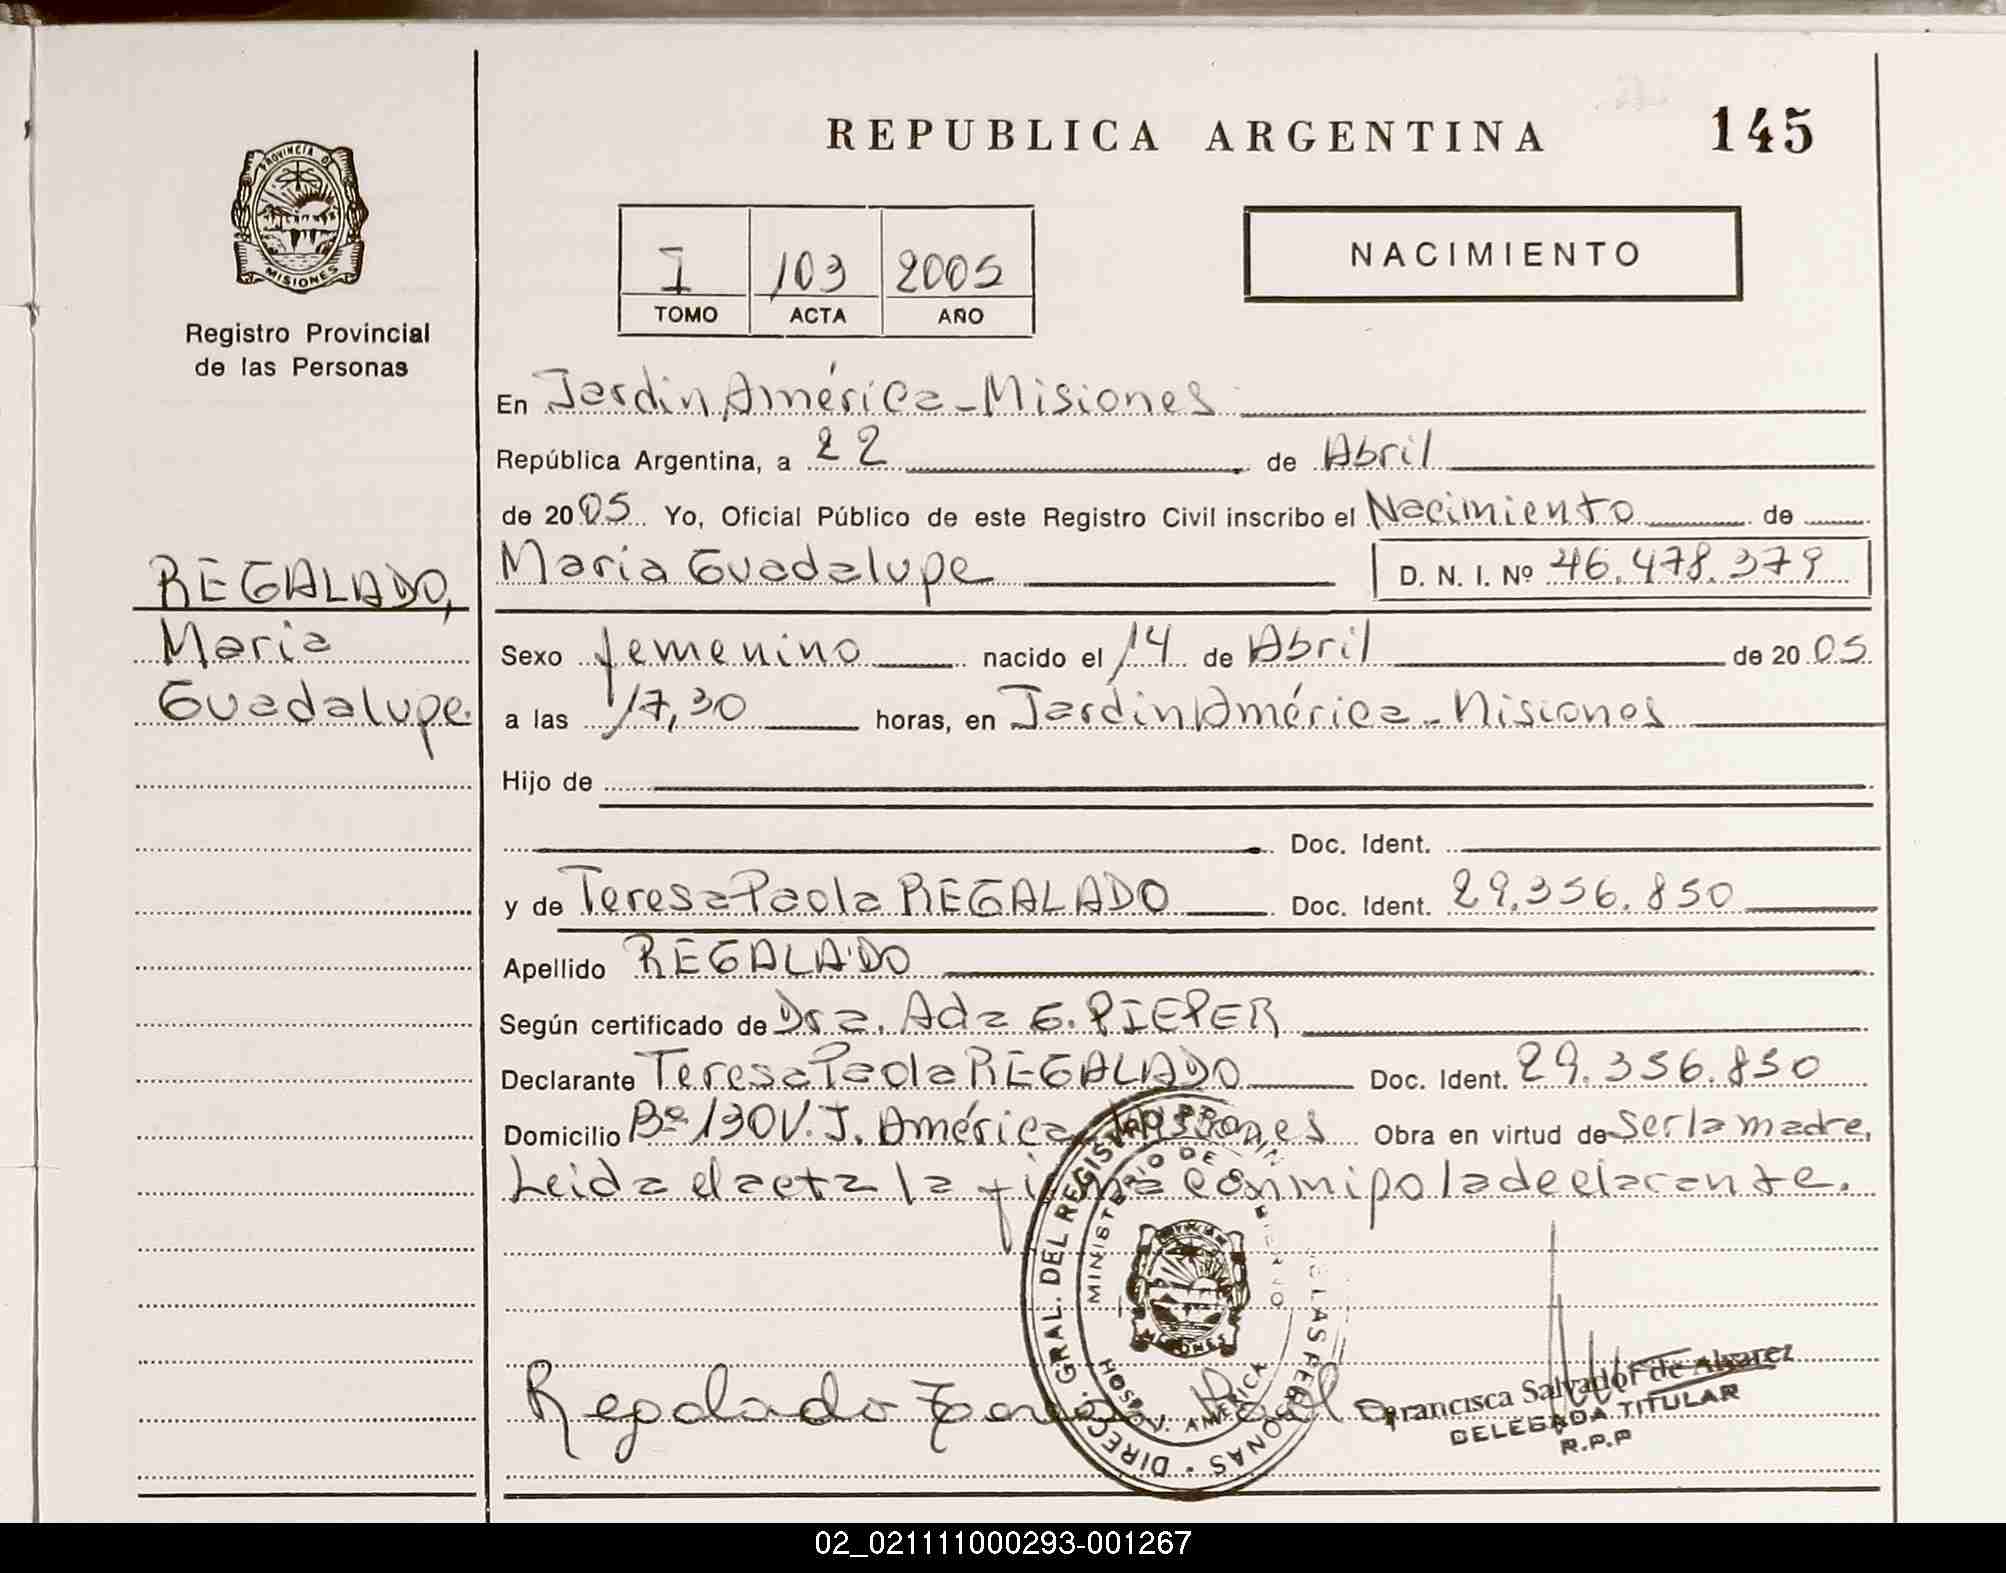 REPUBLICA ARGENTINA 145
PROVINCIA DE
MISIONES
Registro Provincial
de las Personas
I 103 2005
TOMO ACTA AÑO
NACIMIENTO
En Jardin América - Misiones
República Argentina, a 22 de Abril
de 2005 Yo, Oficial Público de este Registro Civil inscribo el Nacimiento de
REGALADO,
Maria
Guadalupe.
Maria Guadalupe D. N. I. Nº 46.478.379
Sexo femenino nacido el 14 de Abril de 2005
a las 17,30 horas, en Jardin América - Misiones
Hijo de
Doc. Ident.
y de Teresa Paola REGALADO Doc. Ident. 29.356.850
Apellido REGALADO
Según certificado de Dra. Ada G. PIEPER
Declarante Teresa Paola REGALADO Doc. Ident. 29.356.850
Domicilio Bº 130 V. J. América - Misiones Obra en virtud de ser la madre,
Leida el acta la firma conmipo la declarante.
DIREC. GRAL. DEL REGISTRO PROVIN. DE LAS PERSONAS
MINISTERIO DE GOBIERNO
MISIONES
HOSP. J. AMERICA
Regalado Teresa Paola
Francisca Salvador de Alvarez
DELEGADA TITULAR
R.P.P
02_021111000293-001267